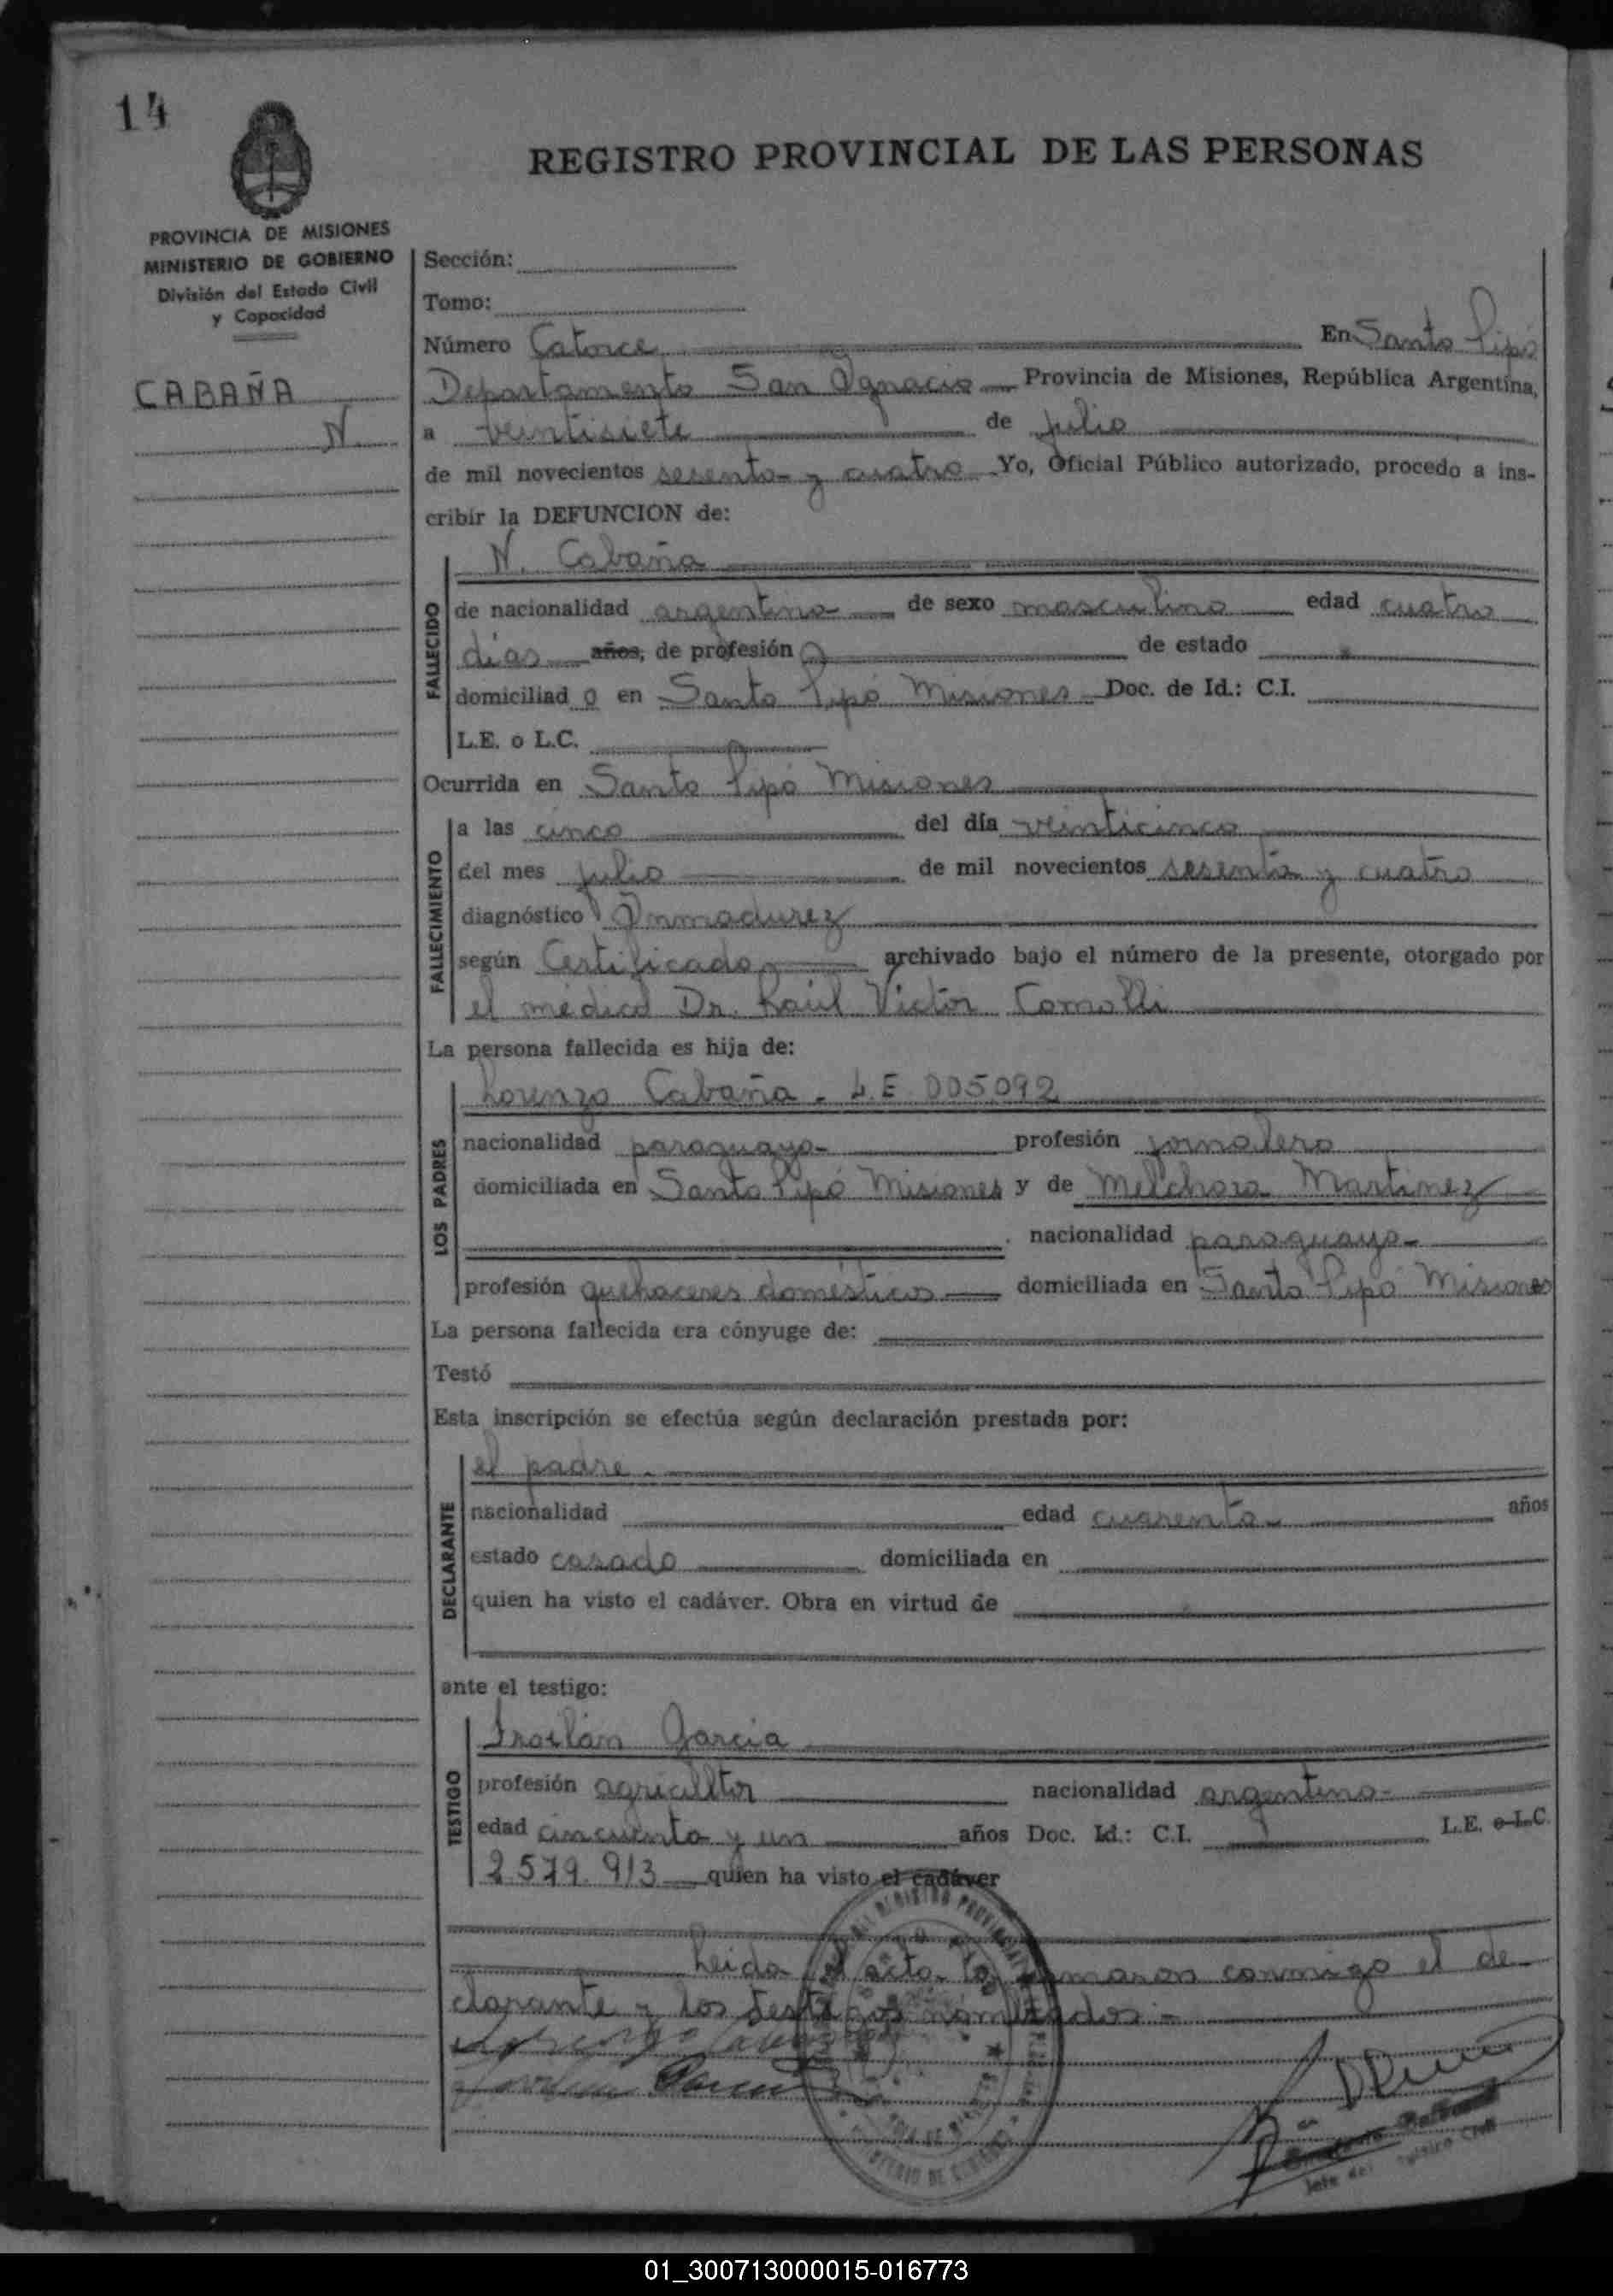 14
REGISTRO PROVINCIAL DE LAS PERSONAS
PROVINCIA DE MISIONES
MINISTERIO DE GOBIERNO
División del Estado Civil
y Capacidad
CABAÑA
N.
Sección:
Tomo:
Número Catorce En Santo Pipó
Departamento San Ignacio Provincia de Misiones, República Argentina,
a veintisiete de julio
de mil novecientos sesenta y cuatro Yo, Oficial Público autorizado, procedo a ins-
cribir la DEFUNCION de:
FALLECIDO
N. Cabaña
de nacionalidad argentina de sexo masculino edad cuatro
días años, de profesión de estado
domiciliad o en Santo Pipó Misiones Doc. de Id.: C.I.
L.E. o L.C.
Ocurrida en Santo Pipó Misiones
FALLECIMIENTO
a las cinco del día veinticinco
del mes julio de mil novecientos sesenta y cuatro
diagnóstico Inmadurez
según Certificado archivado bajo el número de la presente, otorgado por
el médico Dr. Raúl Victor Comolli
La persona fallecida es hija de:
LOS PADRES
Lorenzo Cabaña - L.E. 005.092
nacionalidad paraguaya profesión jornalero
domiciliada en Santo Pipó Misiones y de Melchora Martinez
nacionalidad paraguaya
profesión quehaceres domésticos domiciliada en Santo Pipó Misiones
La persona fallecida era cónyuge de:
Testó
Esta inscripción se efectúa según declaración prestada por:
DECLARANTE
el padre.
nacionalidad edad cuarenta años
estado casado domiciliada en
quien ha visto el cadáver. Obra en virtud de
ante el testigo:
TESTIGO
Froilán Garcia
profesión agricultor nacionalidad argentina
edad cincuenta y un años Doc. Id.: C.I. L.E. o L.C.
2.579.913 quien ha visto el cadáver
Leida el acta la firmaron conmigo el de-
clarante y los testigos nombrados.-
Jefe del Registro Civil
01_300713000015-016773